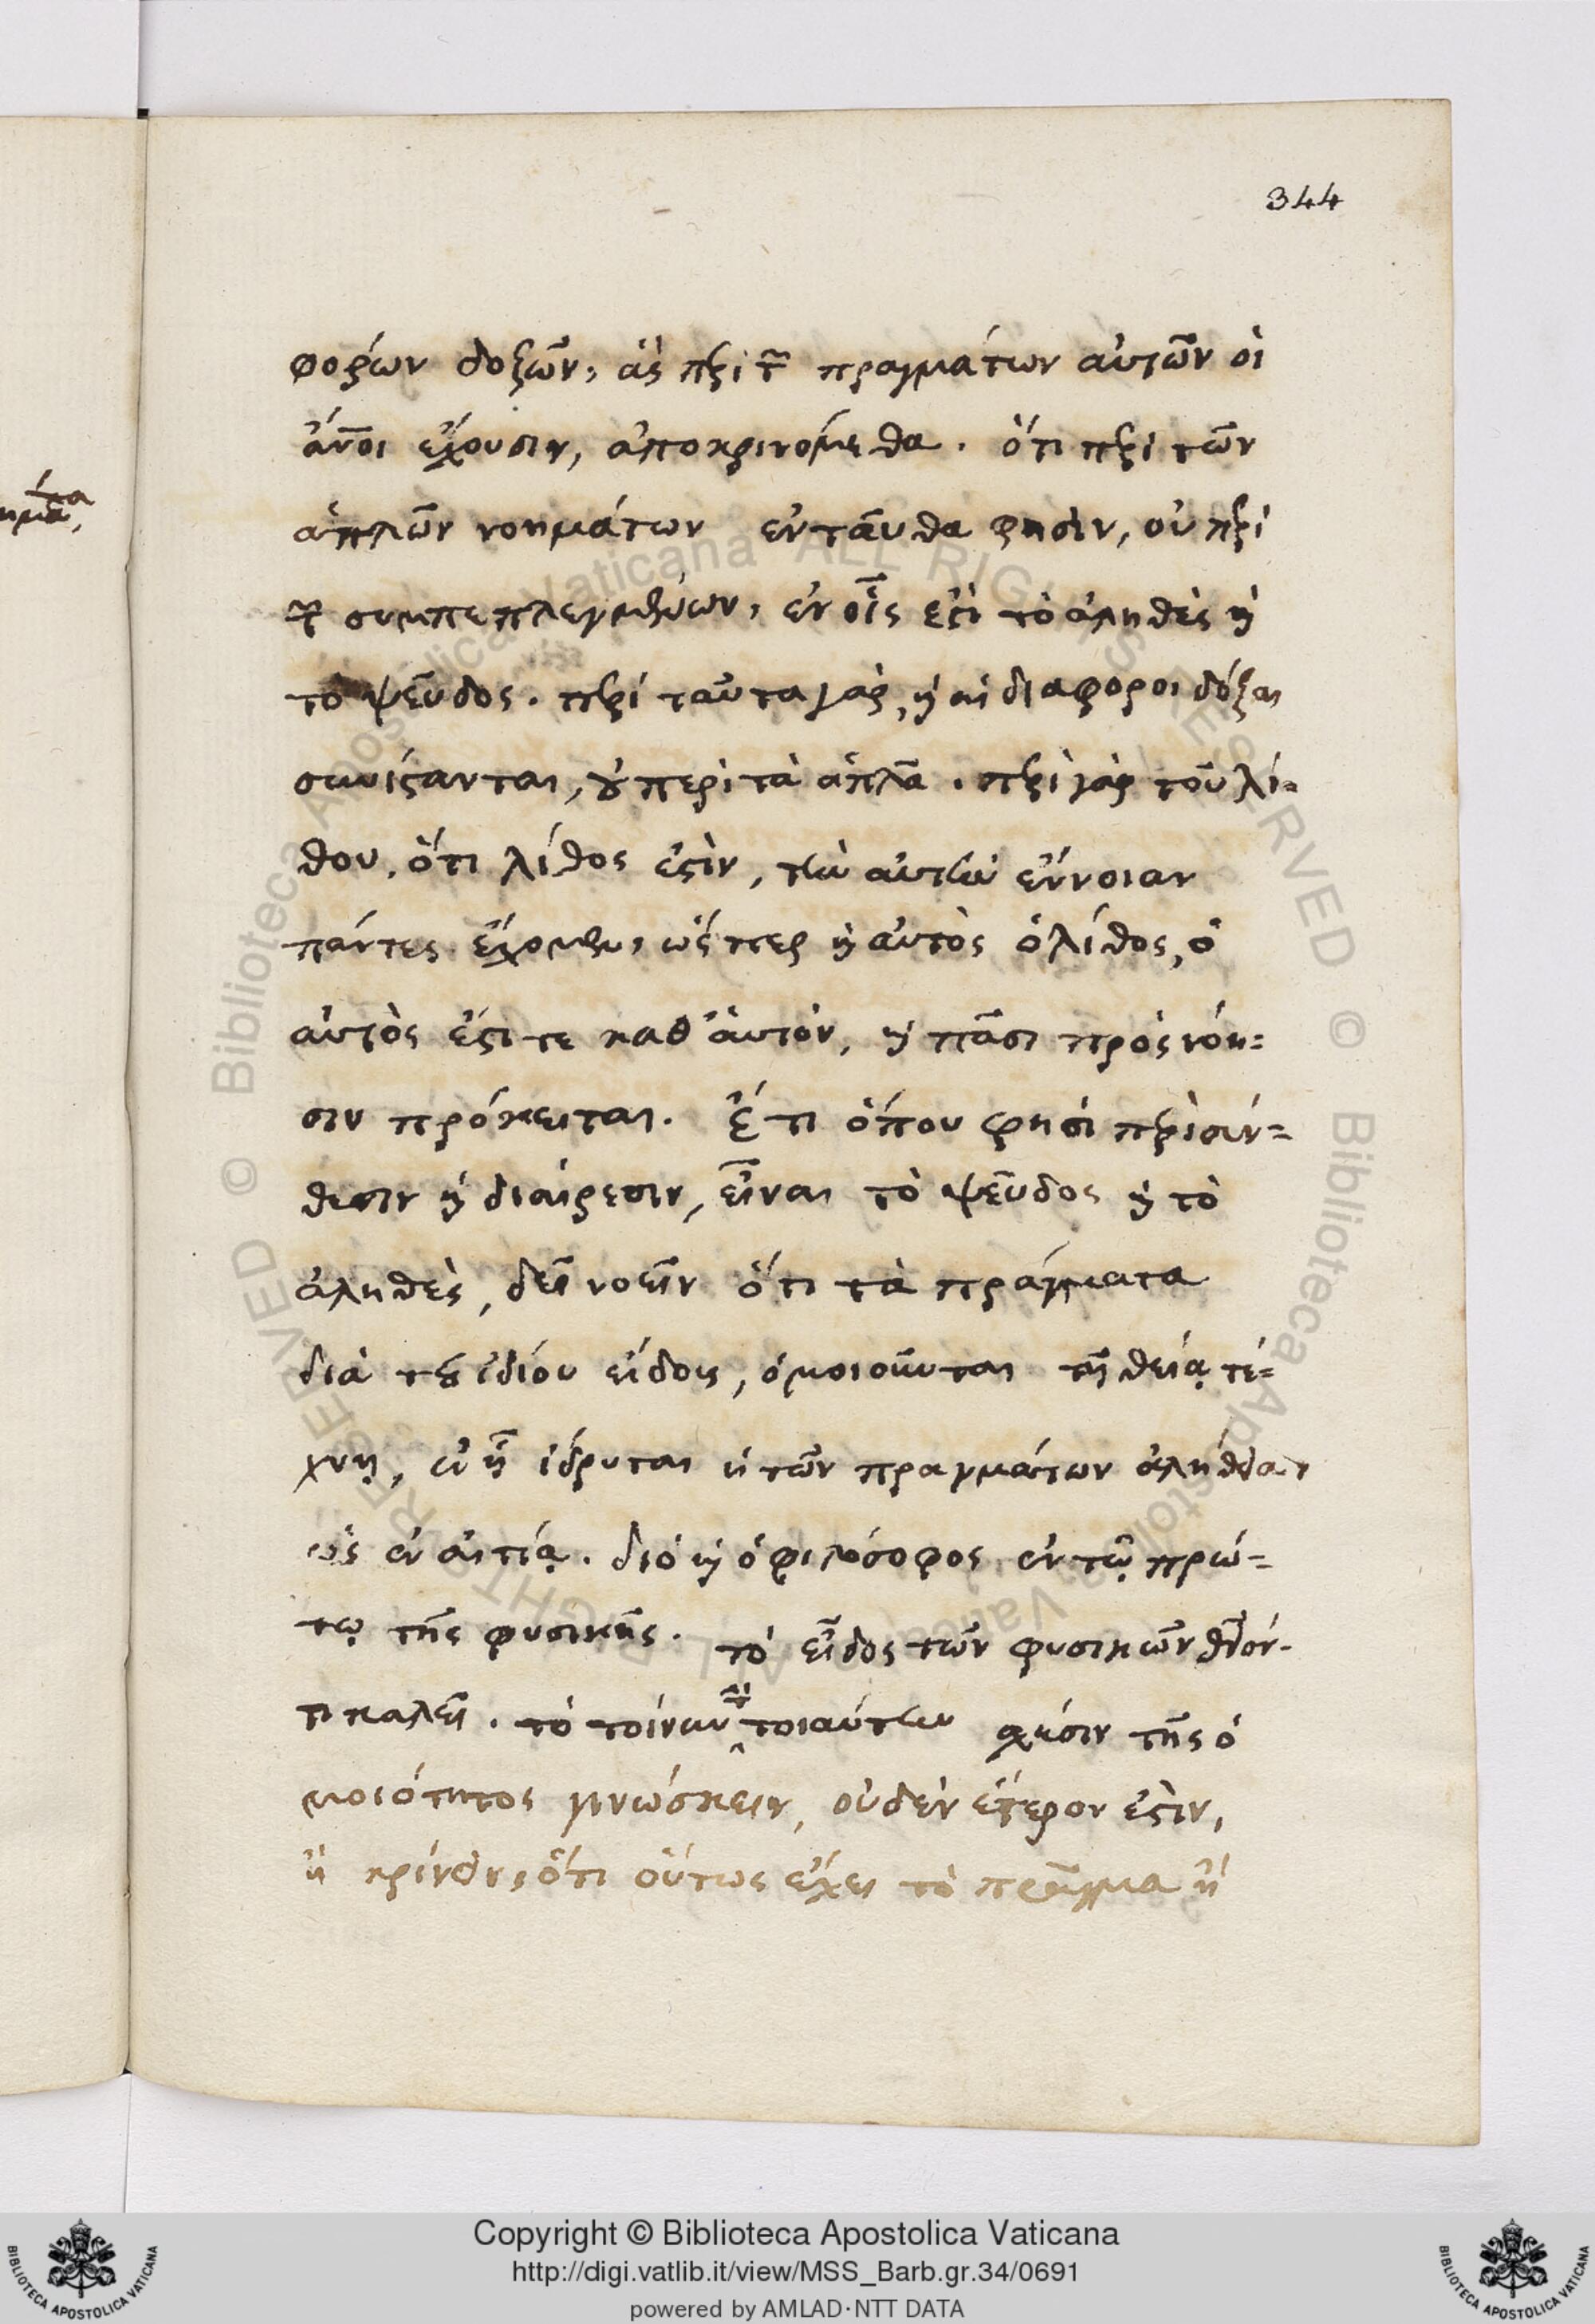 344
φορῶν δοξῶν, ἃς περὶ τῶν πραγμάτων αὐτῶν οἱ
ἄνοι ἔχουσιν, ἀποκρινόμεθα. ὅτι περὶ τῶν
ἁπλῶν νοημάτων ἐνταῦθα φησὶν, οὐ περὶ
τῶν συμπεπλεγμένων, ἐν οἷς ἐστὶ τὸ ἀληθὲς ἢ
τὸ ψεῦδος. περὶ ταῦτα γὰρ, καὶ αἱ διάφοροι δόξαι
συνίστανται, οὐ περὶ τὰ ἁπλᾶ. περὶ γὰρ τοῦ λί=
θου, ὅτι λίθος ἐστὶν, τὴν αὐτὴν ἔννοιαν
πάντες ἔχομεν, ὥσπερ καὶ αὐτὸς ὁ λίθος, ὁ
αὐτὸς ἔστι τε καθ' ἁυτὸν, καὶ πᾶσι πρὸς νόη=
σιν πρόκειται. Ἔτι ὅπου φησὶ περὶ σύν=
θεσιν καὶ διαίρεσιν, εἶναι τὸ ψεῦδος καὶ τὸ
ἀληθὲς, δεῖ νοεῖν ὅτι τὰ πράγματα
διὰ τοῦ ἰδίου εἴδους, ὁμοιοῦνται τῇ θείᾳ τέ=
χνῃ, ἐν ᾗ ἵδρυται ἡ τῶν πραγμάτων ἀλήθεια,
ὡς ἐν αἰτίᾳ. διὸ καὶ ὁ φιλόσοφος ἐν τῷ πρώ=
τῳ τῆς φυσικῆς. τὸ εἶδος τῶν φυσικῶν θεῖόν-
τι καλεῖ. τὸ τοίνυν τὴν τοιαύτην σχέσιν τῆς ὁ
μοιότητος γινώσκειν, οὐδὲν ἕτερον ἐστὶν,
ἢ κρίνειν, ὅτι οὕτως ἔχει τὸ πρᾶγμα ἢ
Copyright © Biblioteca Apostolica Vaticana
http://digi.vatlib.it/view/MSS_Barb.gr.34/0691
powered by AMLAD·NTT DATA
BIBLIOTECA APOSTOLICA VATICANA
BIBLIOTECA APOSTOLICA VATICANA